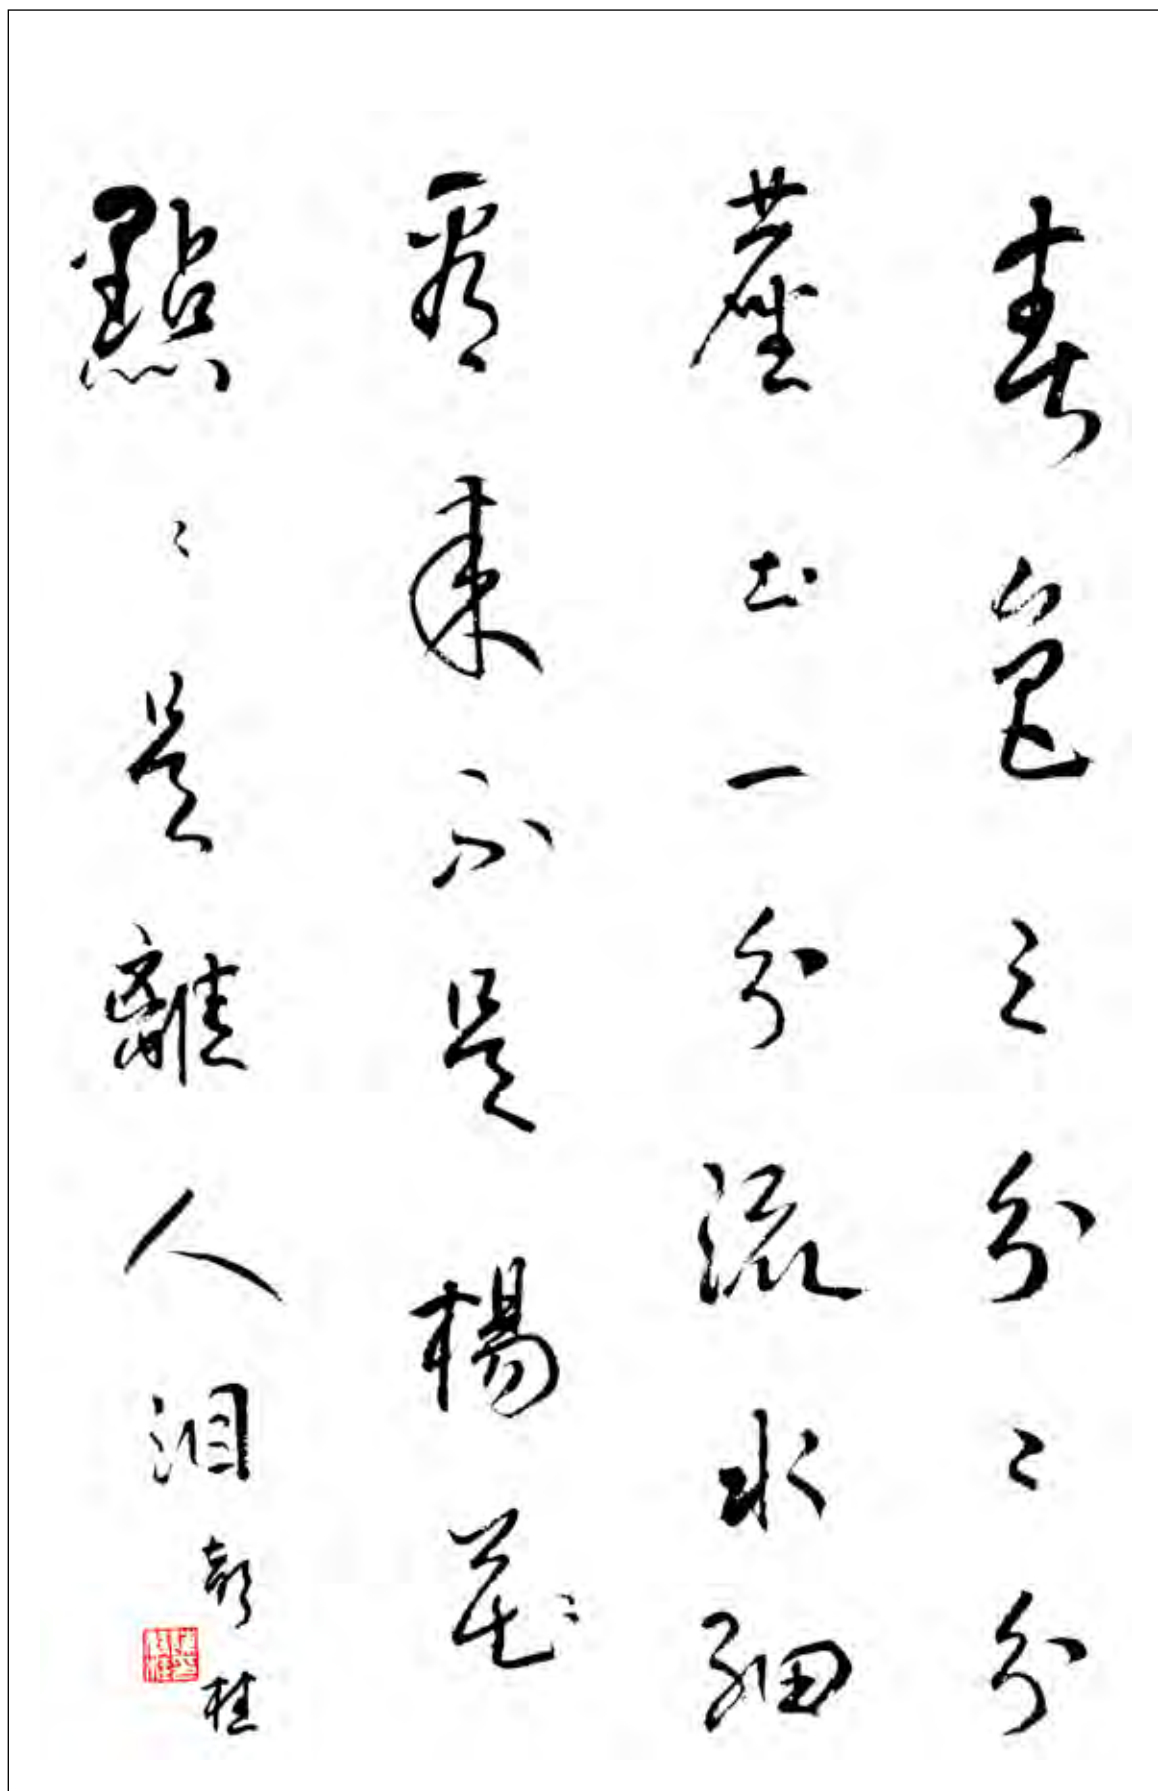 春色三分二分
塵土一分流水細
看來不是楊花
點〻是離人泪
彭桂